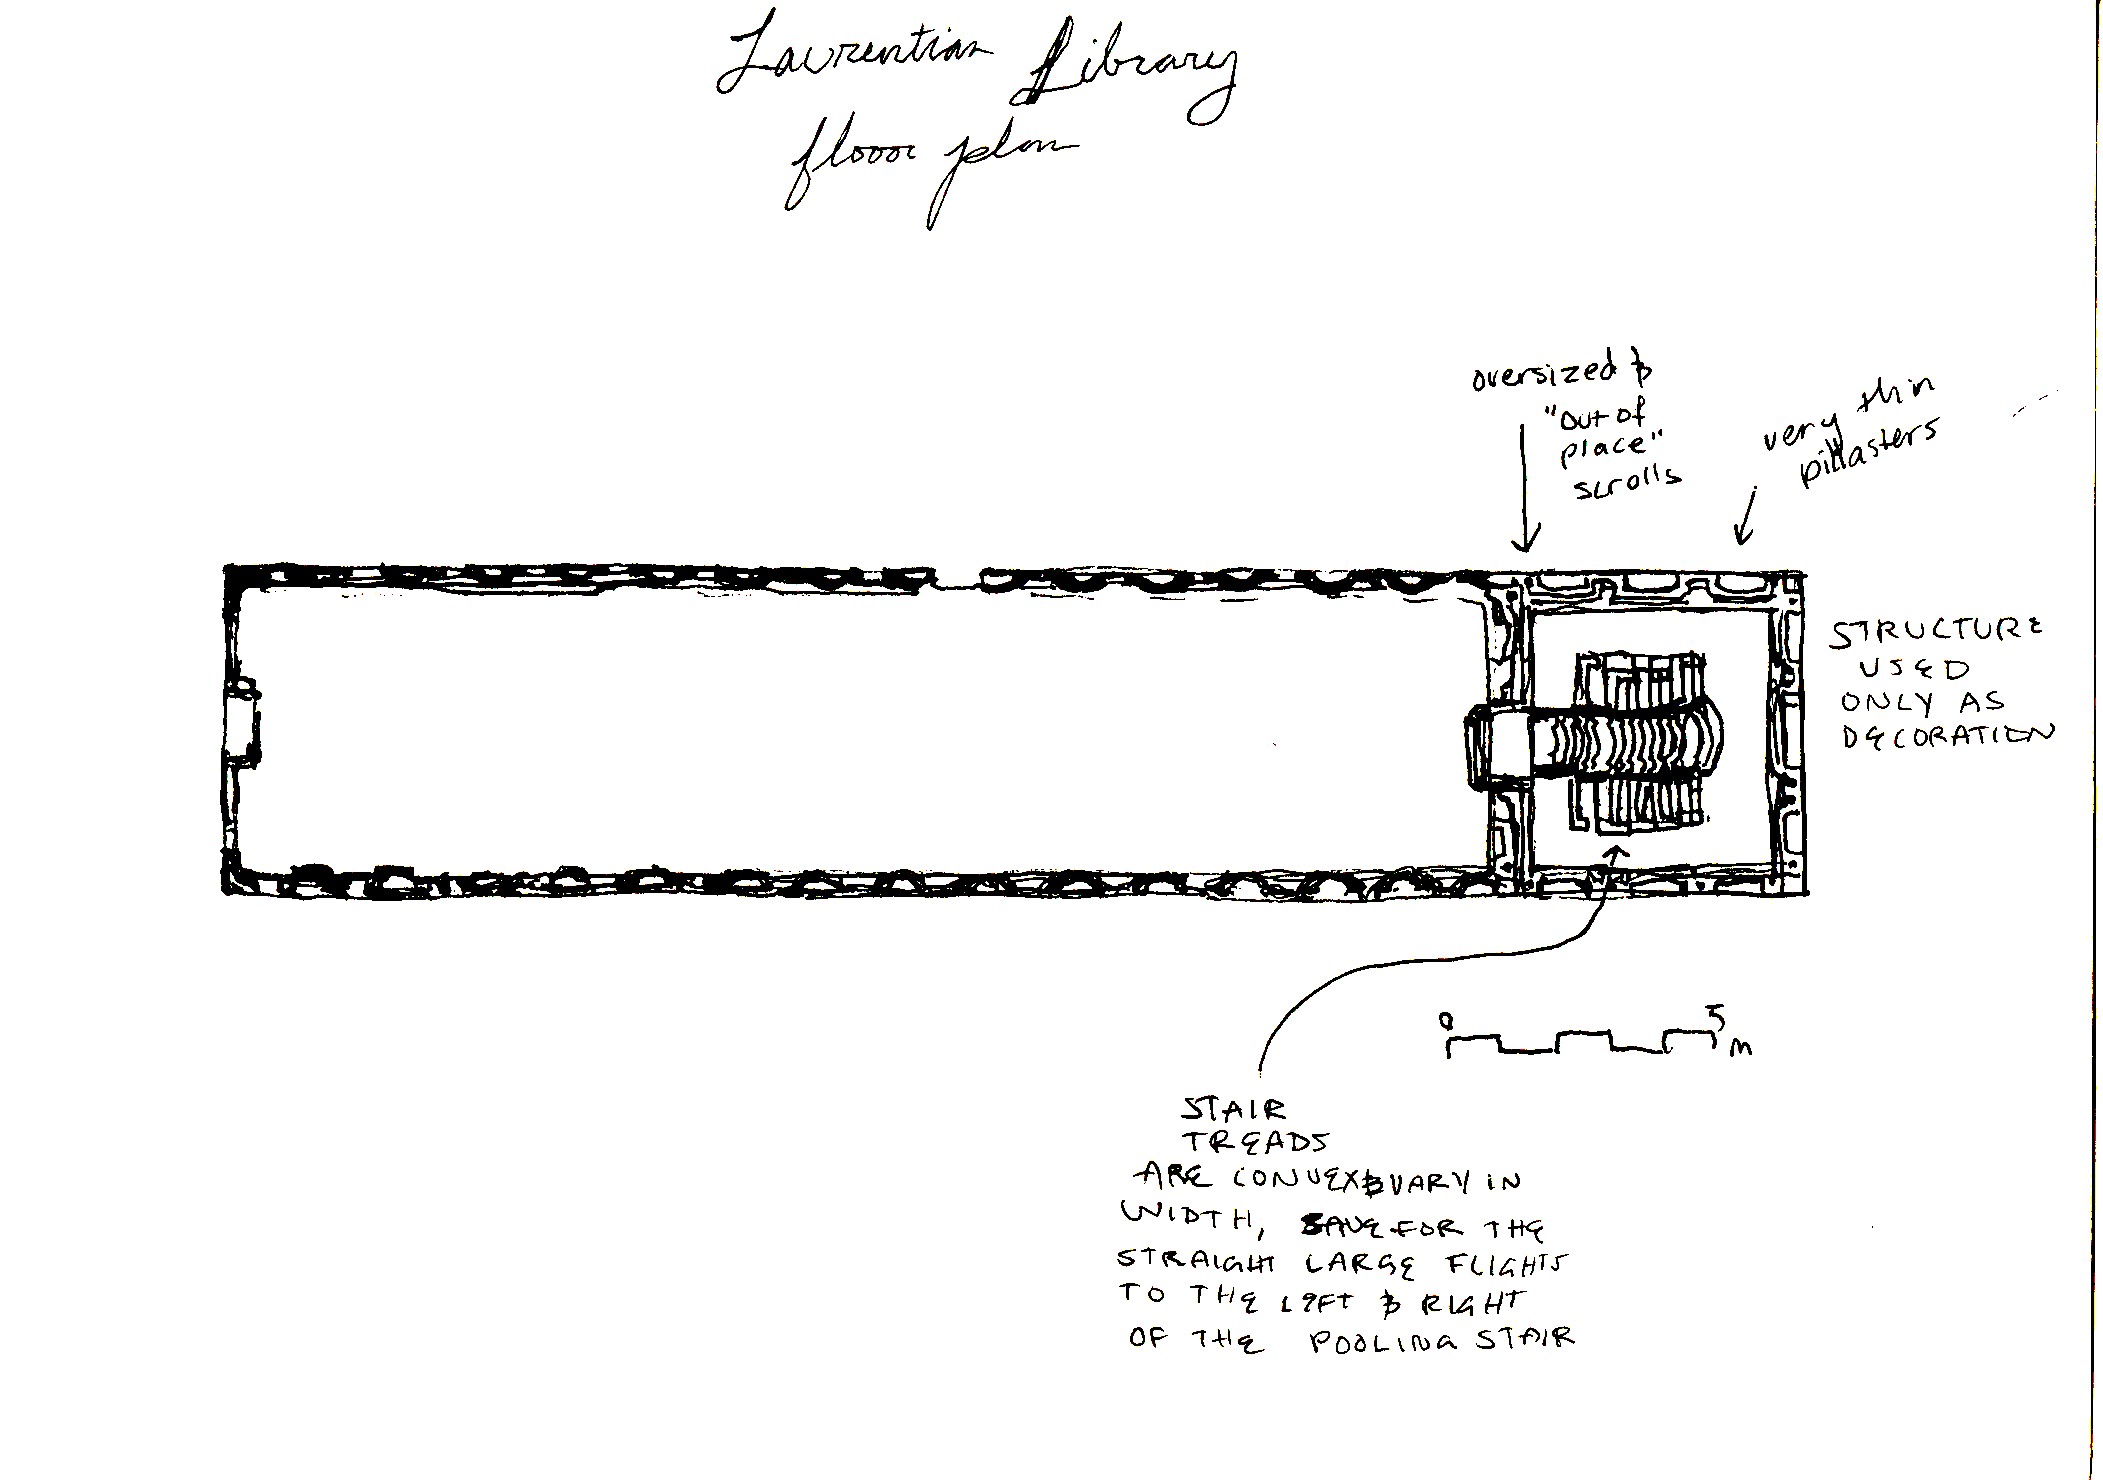 Laurentian Library
floor plan
oversized &
"out of
place"
scrolls
very thin
pillasters
STRUCTURE
USED
ONLY AS
DECORATION
0 5
m
STAIR
TREADS
ARE CONVEX & VARY IN
WIDTH, SAVE FOR THE
STRAIGHT LARGE FLIGHTS
TO THE LEFT & RIGHT
OF THE POOLING STAIR